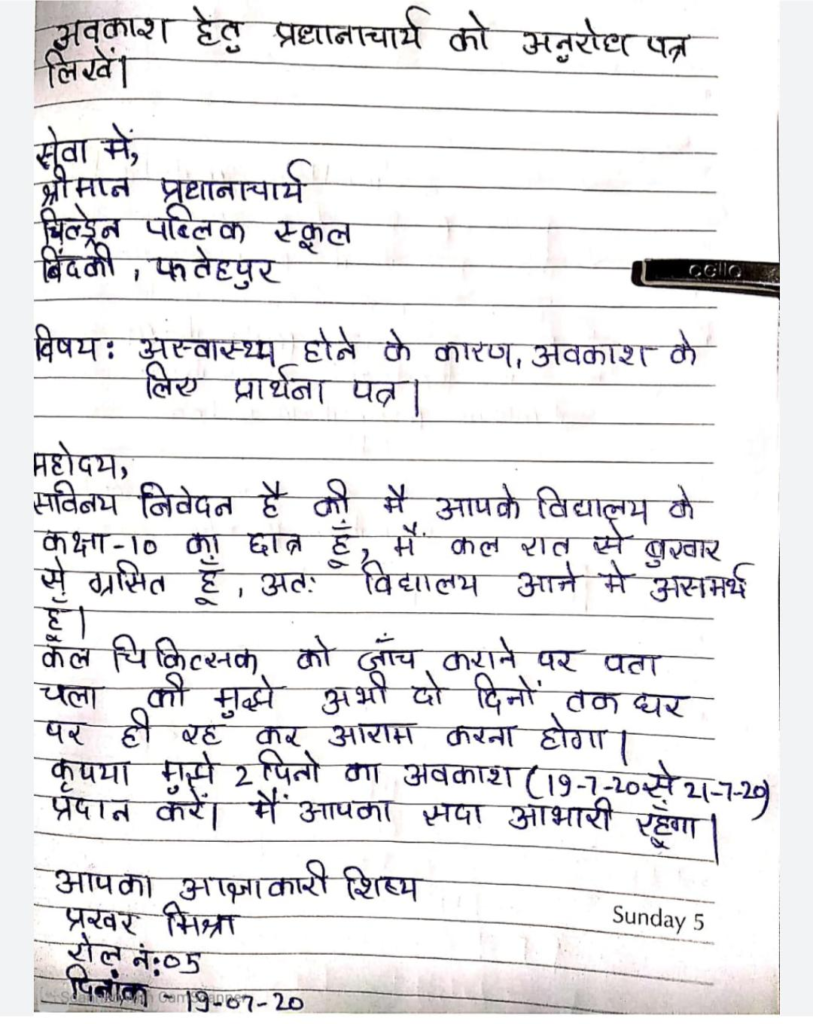 अवकाश हेतु प्रधानाचार्य को अनुरोध पत्र
लिखें।
सेवा में,
श्रीमान प्रधानाचार्य
चिल्ड्रेन पब्लिक स्कूल
बिंदकी, फतेहपुर
cello
विषय: अस्वास्थ्य होने के कारण, अवकाश के
लिए प्रार्थना पत्र।
महोदय,
सविनय निवेदन है की मै आपके विद्यालय के
कक्षा-10 का छात्र हूँ, मैं कल रात से बुखार
से ग्रसित हूँ, अतः विद्यालय आने मे असमर्थ
हूँ।
कल चिकित्सक को जाँच कराने पर पता
चला की मुझे अभी दो दिनों तक घर
पर ही रह कर आराम करना होगा।
कृपया मुझे 2 दिनो का अवकाश (19-7-20 से 21-7-20)
प्रदान करें। मैं आपका सदा आभारी रहूँगा।
आपका आज्ञाकारी शिष्य
प्रखर मिश्रा
Sunday 5
रोल नं:05
दिनांक 19-07-20